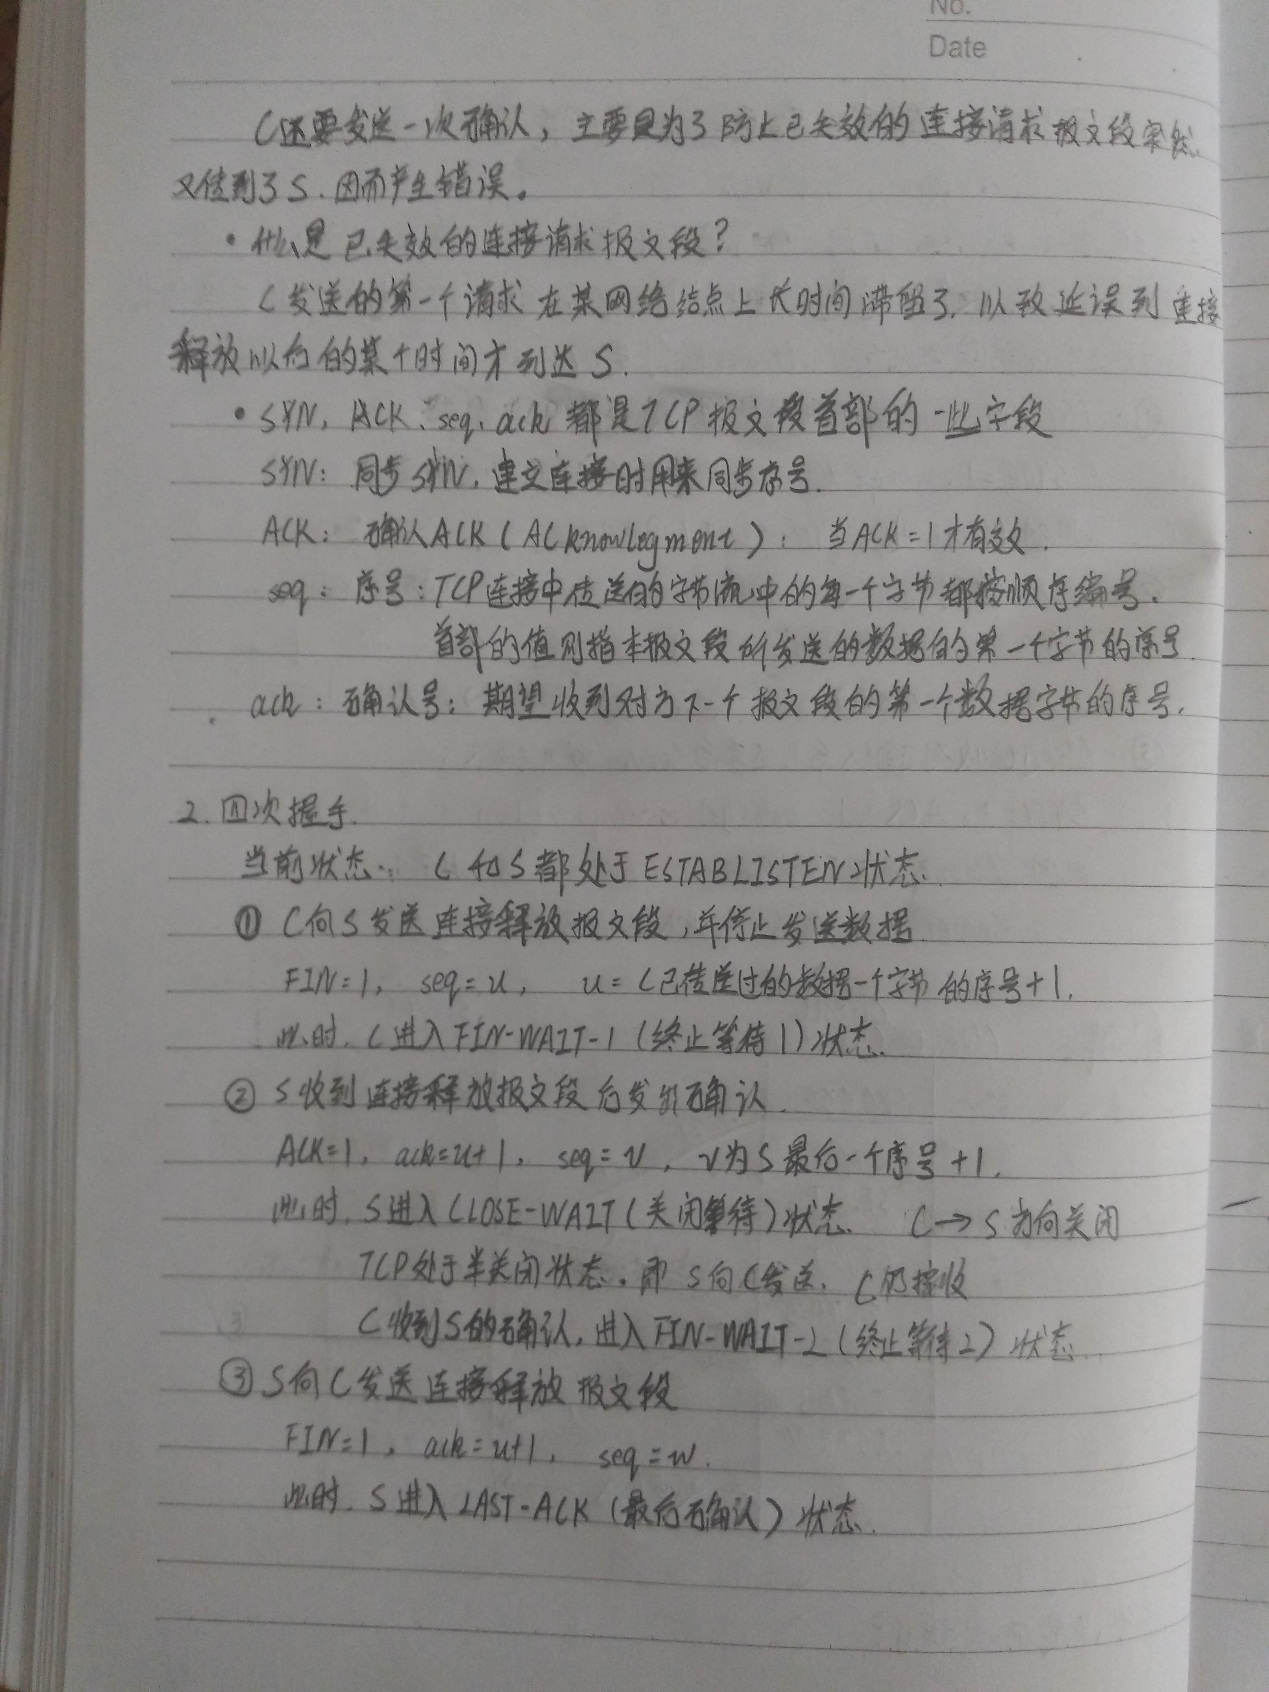 No.
Date
C还要发送一次确认，主要是为了防止已失效的连接请求报文段突然
又传到了S，因而产生错误。
• 什么是已失效的连接请求报文段？
C发送的第一个请求在某网络结点上长时间滞留了，以致延误到连接
释放以后的某个时间才到达S.
• SYN、ACK、seq、ack都是TCP报文段首部的一些字段
SYN：同步SYN，建立连接时用来同步序号.
ACK：确认ACK（ACknowlegment）：当ACK=1才有效.
seq：序号：TCP连接中传送的字节流中的每一个字节都按顺序编号.
首部的值则指本报文段所发送的数据的第一个字节的序号.
ack：确认号：期望收到对方下一个报文段的第一个数据字节的序号.
2.四次握手.
当前状态：C和S都处于ESTABLISTEN状态.
① C向S发送连接释放报文段，并停止发送数据
FIN=1, seq=u, u=C已传送过的数据一个字节的序号+1.
此时，C进入FIN-WAIT-1（终止等待1）状态.
② S收到连接释放报文段后发出确认.
ACK=1, ack=u+1, seq=v, v为S最后一个序号+1.
此时，S进入CLOSE-WAIT（关闭等待）状态. C→S方向关闭
TCP处于半关闭状态。即S向C发送，C仍接收
C收到S的确认，进入FIN-WAIT-2（终止等待2）状态.
③ S向C发送连接释放报文段
FIN=1, ack=u+1, seq=w.
此时，S进入LAST-ACK（最后确认）状态.